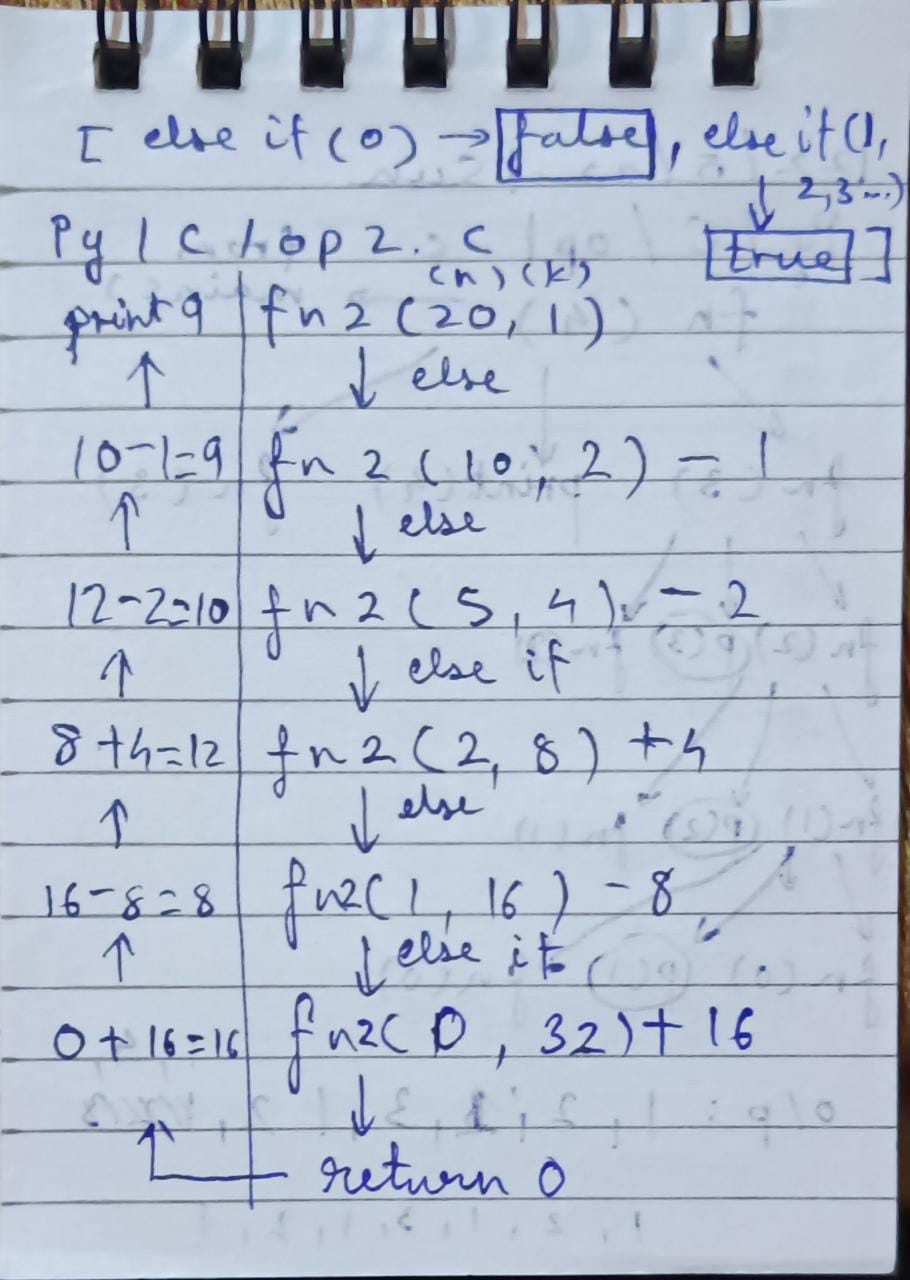 [ else if (0) → false, else if (1,
2,3...)
true ]
Py / C / op2. C
(n) (k)
print 9 fn2 (20, 1)
↑ ↓ else
10-1=9 fn 2 (10, 2) - 1
↑ ↓ else
12-2=10 fn 2 ( 5, 4) - 2
↑ ↓ else if
8+4=12 fn2 (2, 8) + 4
↑ ↓ else
16-8=8 fn2( 1, 16 ) - 8
↑ ↓ else if
0+16=16 fn2( 0, 32)+ 16
↓
return 0